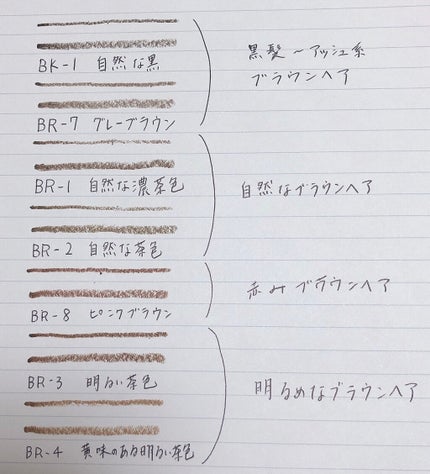 BK-1 自然な黒
黒髪～アッシュ系
ブラウンヘア
BR-7 グレーブラウン
BR-1 自然な濃茶色
自然なブラウンヘア
BR-2 自然な茶色
BR-8 ピンクブラウン
赤みブラウンヘア
BR-3 明るい茶色
明るめなブラウンヘア
BR-4 黄味のある明るい茶色